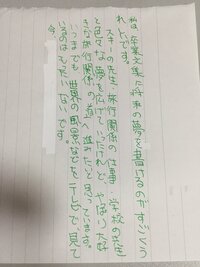 私は、卒業文集に将来の夢を書けるのがすごくう
れしいです。
スキーの先生、旅行関係の仕事、学校の先生
と色々な夢を広げていったけれど、やはり大好
きな旅行関係の道へ進みたいと思っています。
いつまでも、世界の風景などをテレビで見て
いるのはもったいないです。
今、